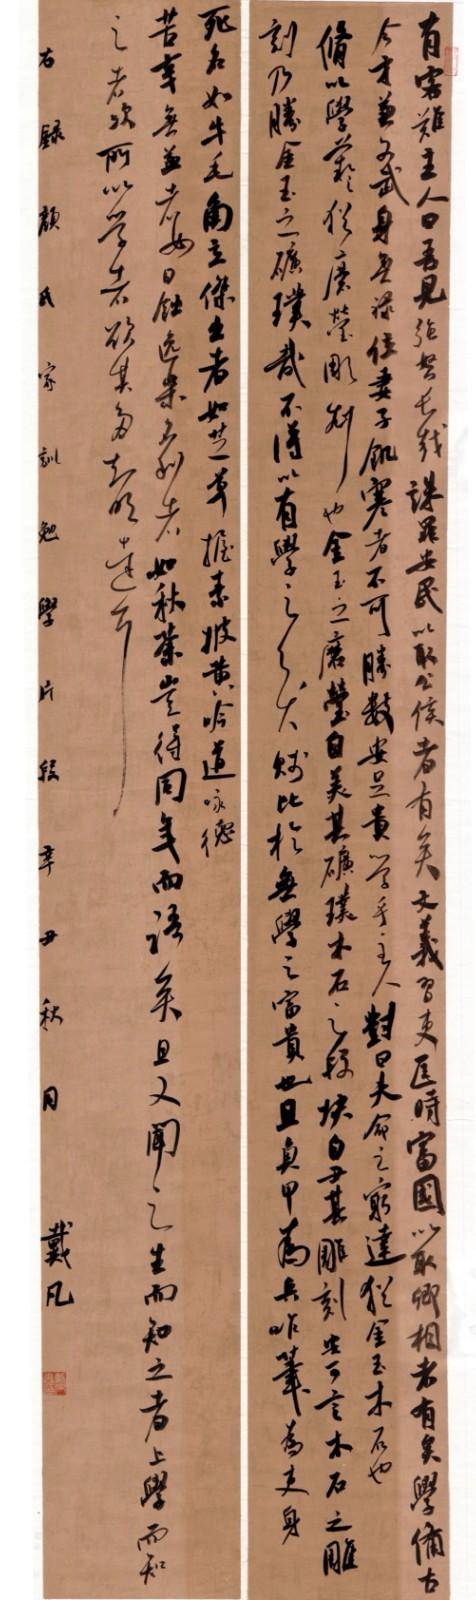 有客難主人曰吾見強弩長戟誅罪安民以取公侯者有矣文義習吏匡時富國以取卿相者有矣學備古
今才兼文武身無祿位妻子飢寒者不可勝數安足貴学乎主人對曰夫命之窮達猶金玉木石也
脩以學藝猶磨瑩彫刻也金玉之磨瑩自美其礦璞木石之段塊自丑其雕刻安可言木石之雕
刻乃勝金玉之礦璞哉不得以有學之貧賤比於無學之富貴也且負甲為兵咋筆為吏身
死名如牛毛角立傑出者如芝草握素披黄吟道咏德
苦辛無益者如日蝕逸樂名利者如秋荼豈得同年而語矣且又聞之生而知之者上學而知
之者次所以学者欲其多知明達耳
右録顏氏家訓勉學片段辛丑秋月 戴凡